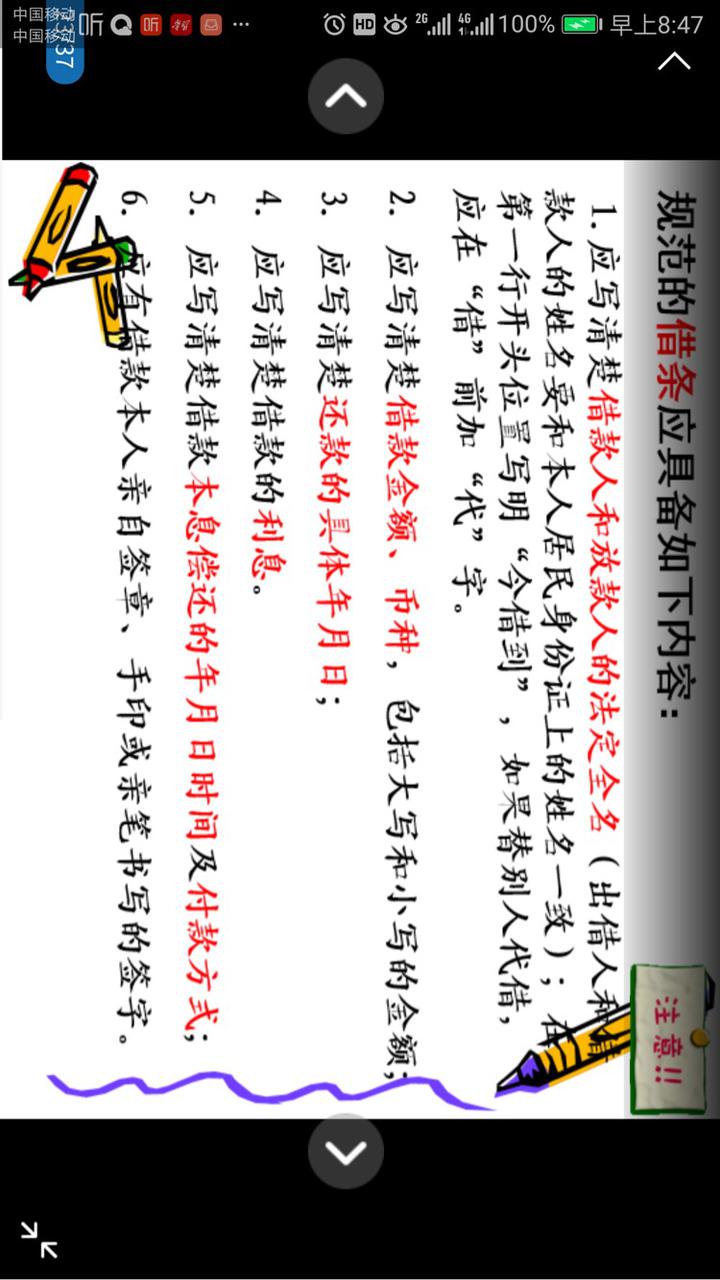 中国移动
中国移动
13:37
听
听
HD
2G
4G
100%
早上8:47
规范的借条应具备如下内容：
注意!!
1.应写清楚借款人和放款人的法定全名（出借人和借
款人的姓名要和本人居民身份证上的姓名一致）；在
第一行开头位置写明“今借到”，如果替别人代借，
应在“借”前加“代”字。
2. 应写清楚借款金额、币种，包括大写和小写的金额；
3. 应写清楚还款的具体年月日；
4. 应写清楚借款的利息。
5. 应写清楚借款本息偿还的年月日时间及付款方式；
6. 应有借款本人亲自签章、手印或亲笔书写的签字。